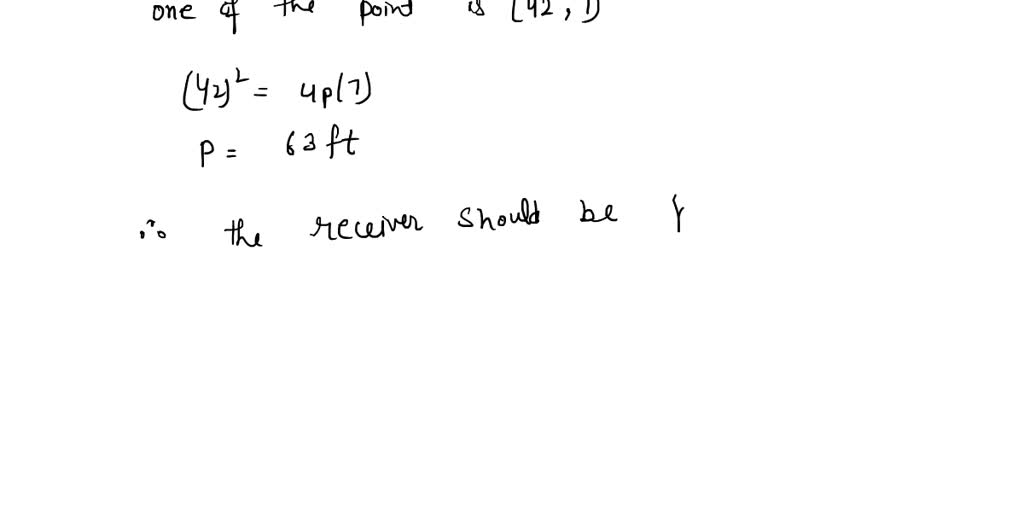 one of the point is (42, 7)
(42)² = 4p(7)
p = 63 ft
∴ the receiver should be